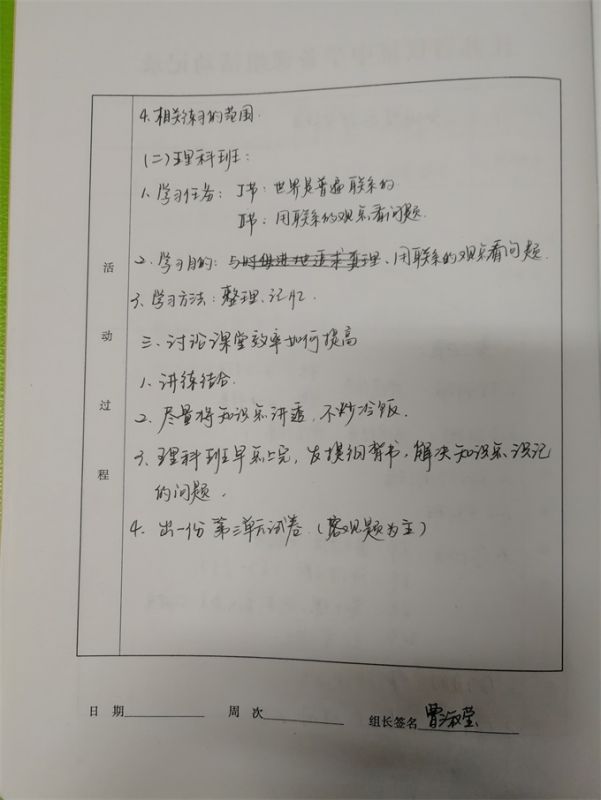 4. 相关练习的范围.
(二)理科班:
1. 学习任务: I节: 世界是普遍联系的
II节: 用联系的观点看问题.
2. 学习目的: 与时俱进地追求真理、用联系的观点看问题.
3. 学习方法: 整理、记忆.
三、讨论课堂效率如何提高
1. 讲练结合.
2. 尽量将知识点讲透, 不炒冷饭.
3. 理科班早点上完, 发提纲背书, 解决知识点识记
的问题.
4. 出一份第三单元试卷.(客观题为主)
活动过程
日 期 周 次 组长签名 曾淑莹